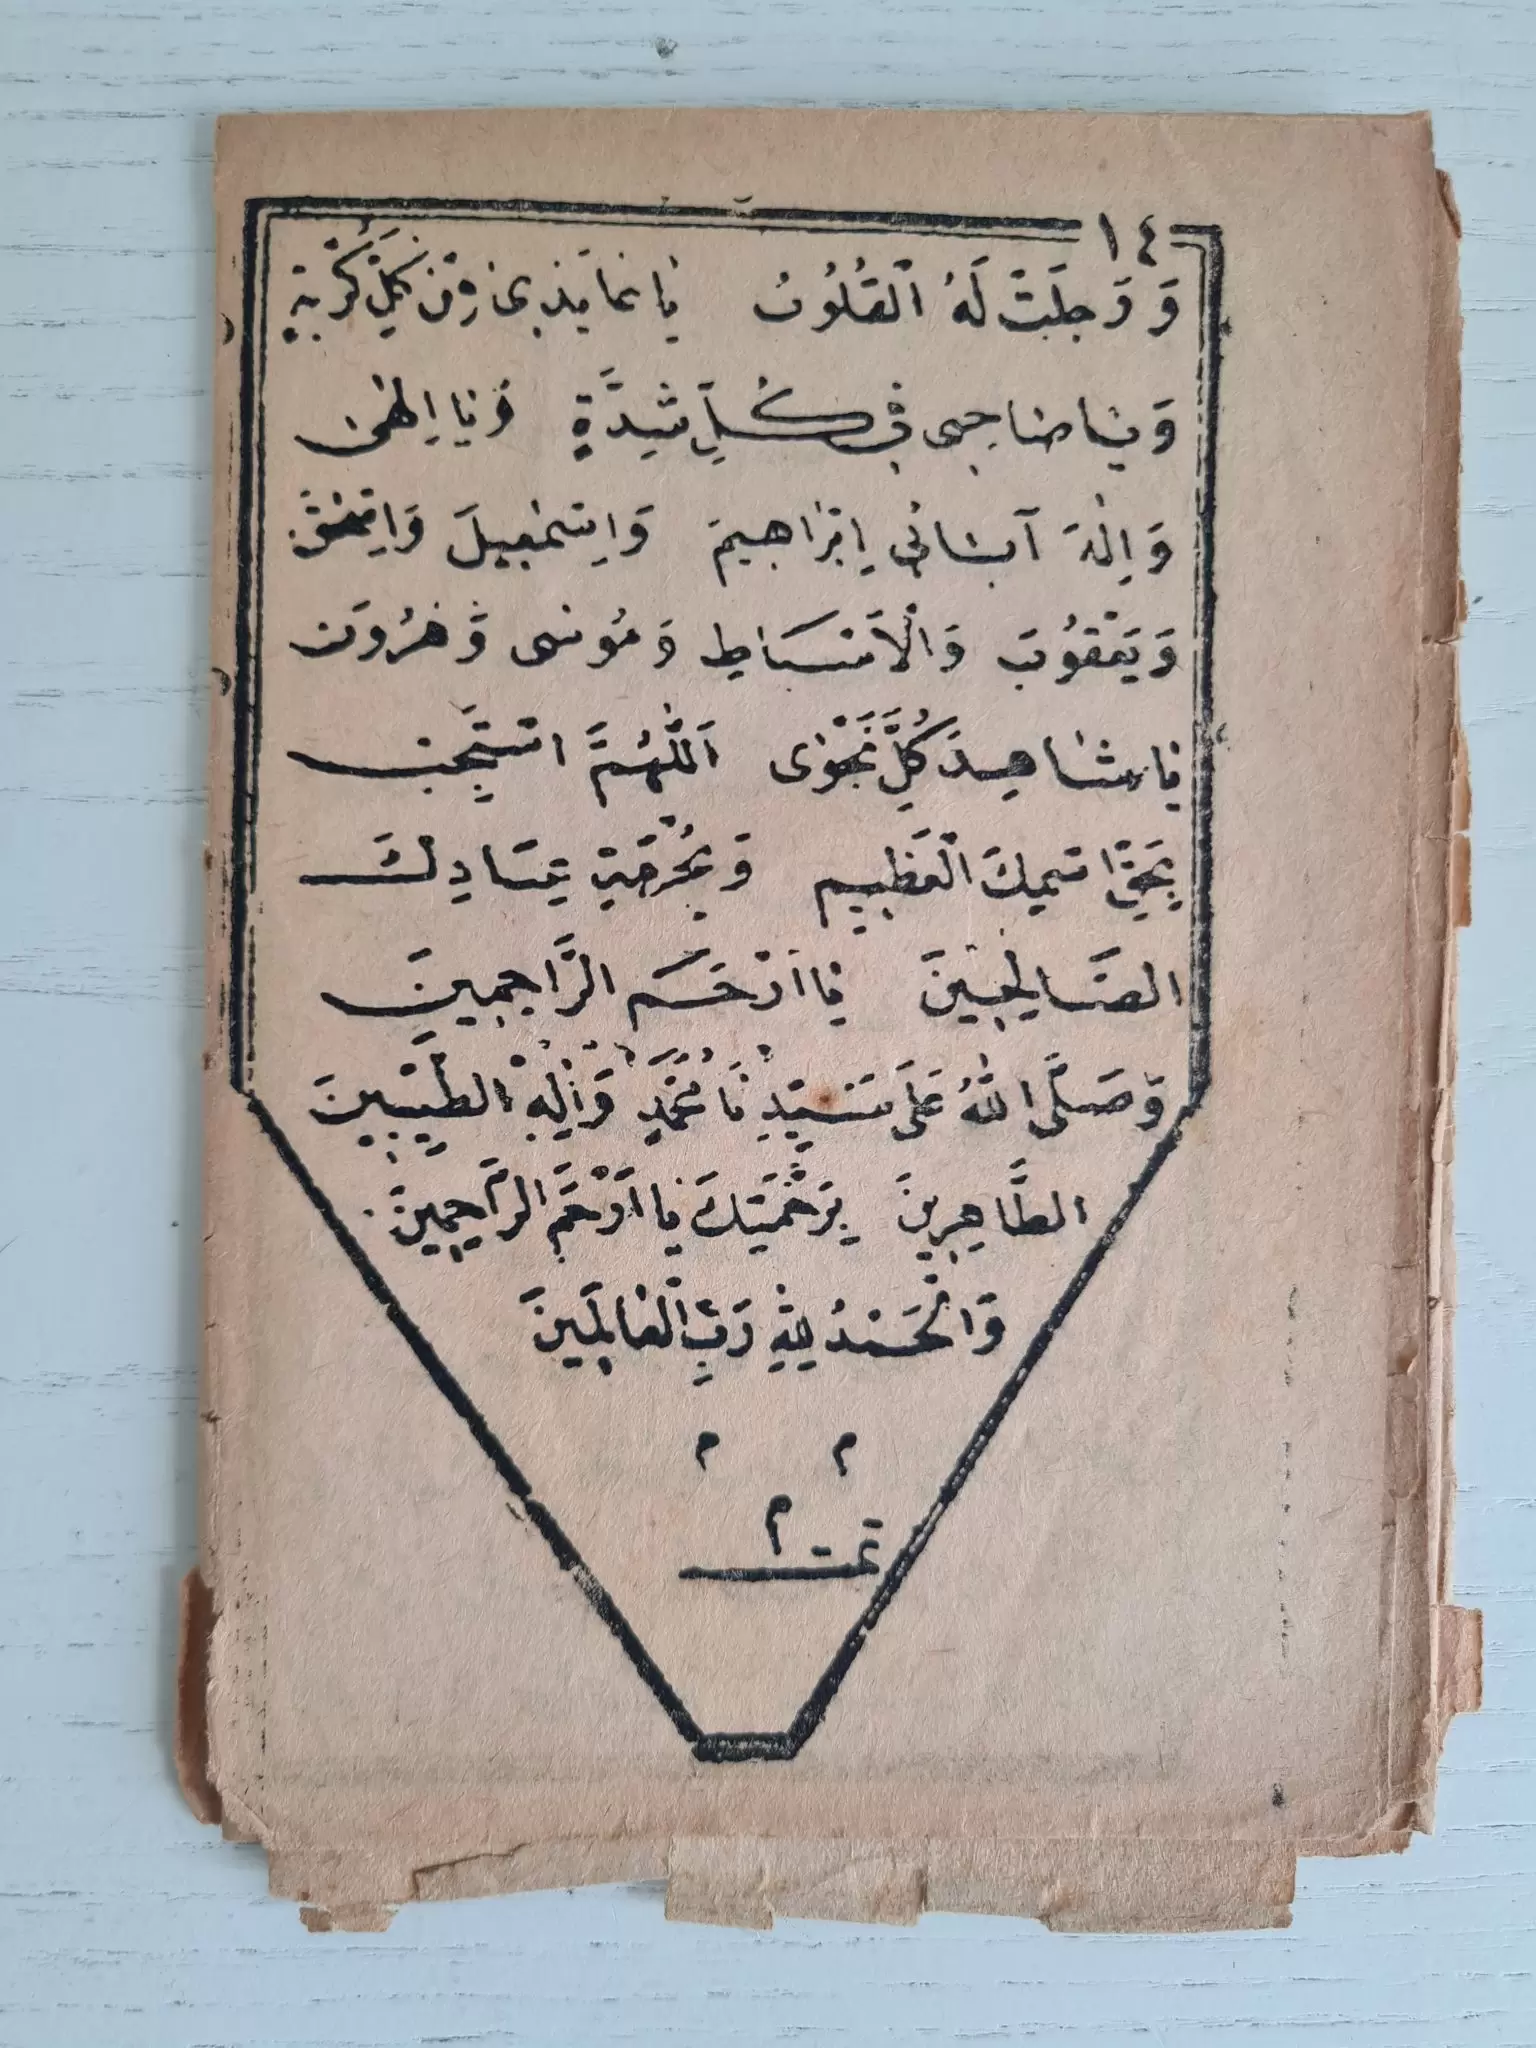 ١٤
وَ وَجِلَتْ لَهُ الْقُلُوبُ يَا نِعْمَا يَذِى مِنْ كُلِّ كُرْبَةٍ
وَيَا صَاحِبِى فِى كُلِّ شِدَّةٍ وَيَا اِلٰهِى
وَ اِلٰهَ آبَائِى اِبْرَاهِيمَ وَاِسْمٰعِيلَ وَاِسْحٰقَ
وَ يَعْقُوبَ وَالْاَسْبَاطِ وَ مُوسٰى وَ هٰرُونَ
يَا شَاهِدَ كُلِّ نَجْوٰى اَللّٰهُمَّ اسْتَجِبْ
بِحَقِّ اسْمِكَ الْعَظِيمِ وَ بِحُرْمَةِ عِبَادِكَ
الصَّالِحِينَ يَا اَرْحَمَ الرَّاحِمِينَ
وَصَلَّى اللّٰهُ عَلَى سَيِّدِنَا مُحَمَّدٍ وَ اٰلِهِ الطَّيِّبِينَ
الطَّاهِرِينَ بِرَحْمَتِكَ يَا اَرْحَمَ الرَّاحِمِينَ
وَ الْحَمْدُ لِلّٰهِ رَبِّ الْعَالَمِينَ
م م
م
تمت